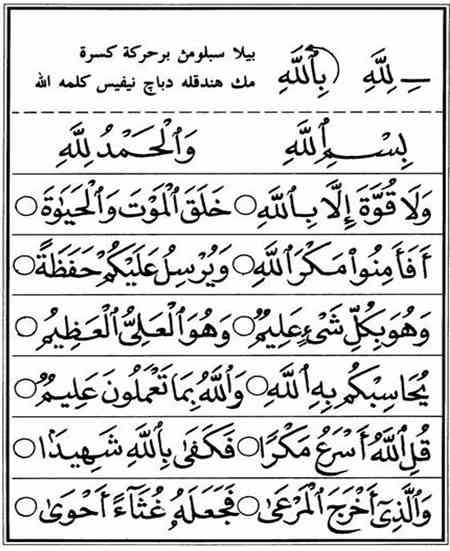 ـِ لِلَّهِ بِٱللَّهِ
بيلا سبلومڽ برحركة كسرة
مك هندقله دباچ نيفيس كلمه الله
بِسْمِ ٱللَّهِ وَٱلْحَمْدُ لِلَّهِ
وَلَا قُوَّةَ إِلَّا بِٱللَّهِ ○ خَلَقَ ٱلْمَوْتَ وَٱلْحَيَوٰةَ ○
أَفَأَمِنُوا۟ مَكْرَ ٱللَّهِ ○ وَيُرْسِلُ عَلَيْكُمْ حَفَظَةً ○
وَهُوَ بِكُلِّ شَىْءٍ عَلِيمٌ ○ وَهُوَ ٱلْعَلِىُّ ٱلْعَظِيمُ ○
يُحَاسِبْكُم بِهِ ٱللَّهُ ○ وَٱللَّهُ بِمَا تَعْمَلُونَ عَلِيمٌ ○
قُلِ ٱللَّهُ أَسْرَعُ مَكْرًا ○ فَكَفَىٰ بِٱللَّهِ شَهِيدًۢا ○
وَٱلَّذِىٓ أَخْرَجَ ٱلْمَرْعَىٰ ○ فَجَعَلَهُۥ غُثَآءً أَحْوَىٰ ○